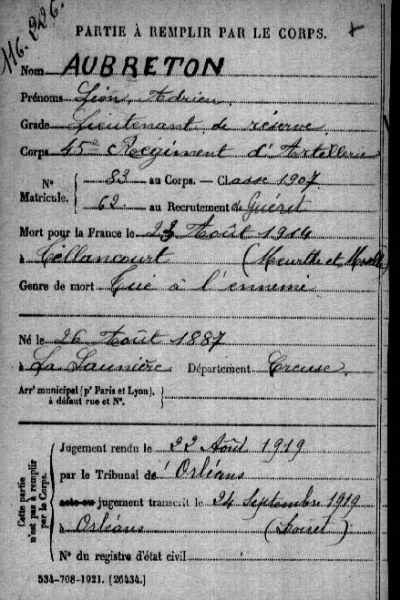 116.326.
PARTIE À REMPLIR PAR LE CORPS.
Nom AUBRETON
Prénoms Léon, Adrien.
Grade Lieutenant de réserve
Corps 45e Régiment d'Artillerie
N° Matricule. 83 au Corps. — Classe 1907
62 au Recrutement de Guéret
Mort pour la France le 23 Août 1914
à Tellancourt (Meurthe et Moselle)
Genre de mort Tué à l'ennemi
Né le 26 Août 1887
à La Saunière Département Creuse.
Arrt municipal (pr Paris et Lyon), à défaut rue et N°.
Cette partie n'est pas à remplir par le Corps.
Jugement rendu le 22 Août 1919
par le Tribunal de Orléans
acte ou jugement transcrit le 24 Septembre 1919
à Orléans (Loiret)
N° du registre d'état civil
534-708-1921. [26434.]